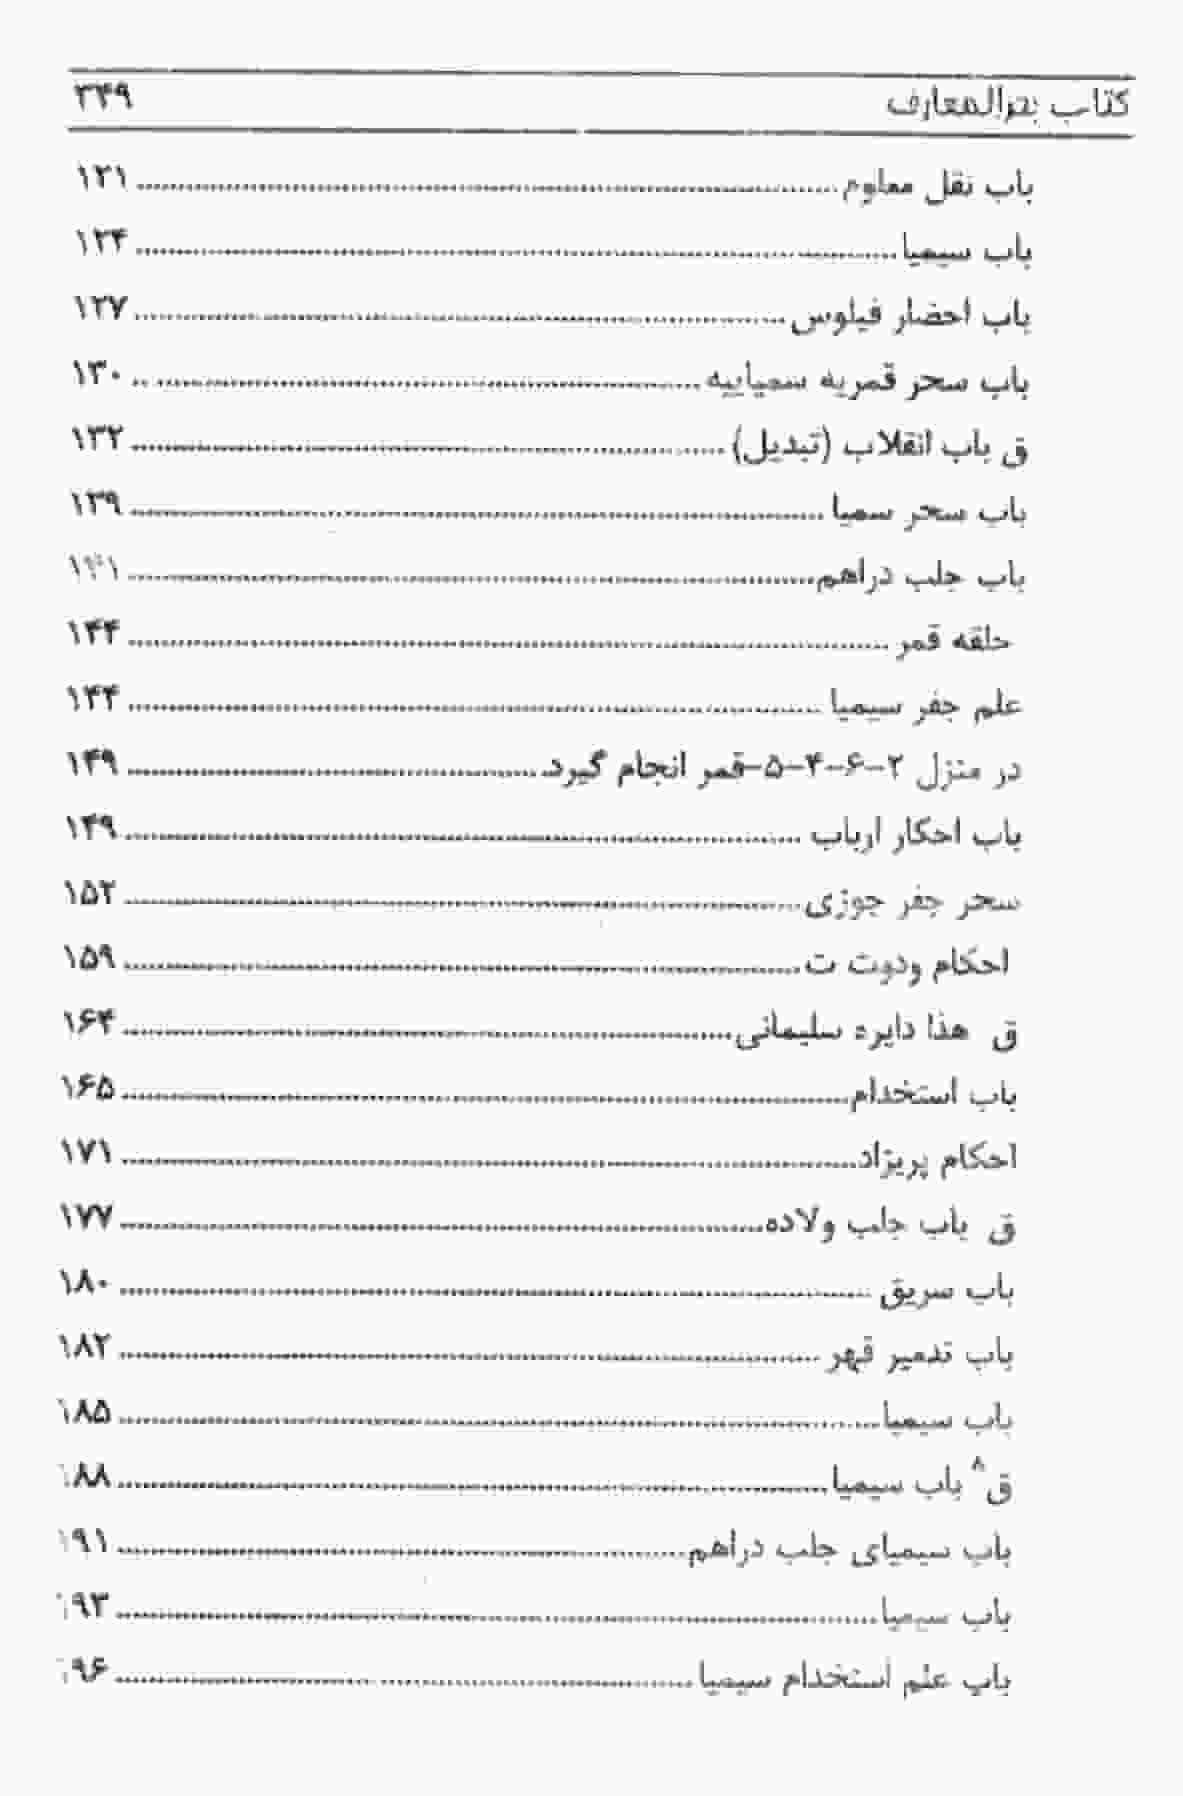 کتاب بحرالمعارف ۳۴۹
باب نقل معلوم ۱۲۱
باب سیمیا ۱۲۴
باب احضار فیلوس ۱۲۷
باب سحر قمریه سمیاییه ۱۳۰
ق باب انقلاب (تبدیل) ۱۳۲
باب سحر سمیا ۱۳۹
باب جلب دراهم ۱۴۱
حلقه قمر ۱۴۴
علم جفر سیمیا ۱۴۴
در منزل ۲-۶-۴-۵-قمر انجام گیرد ۱۴۹
باب احکار ارباب ۱۴۹
سحر جفر جوزی ۱۵۲
احکام ودوت ت ۱۵۹
ق هذا دایره سلیمانی ۱۶۴
باب استخدام ۱۶۵
احکام پریزاد ۱۷۱
ق باب جلب ولاده ۱۷۷
باب سریق ۱۸۰
باب تدمیر قهر ۱۸۲
باب سیمیا ۱۸۵
ق۸ باب سیمیا ۱۸۸
باب سیمیای جلب دراهم ۱۹۱
باب سیمیا ۱۹۳
باب علم استخدام سیمیا ۱۹۶